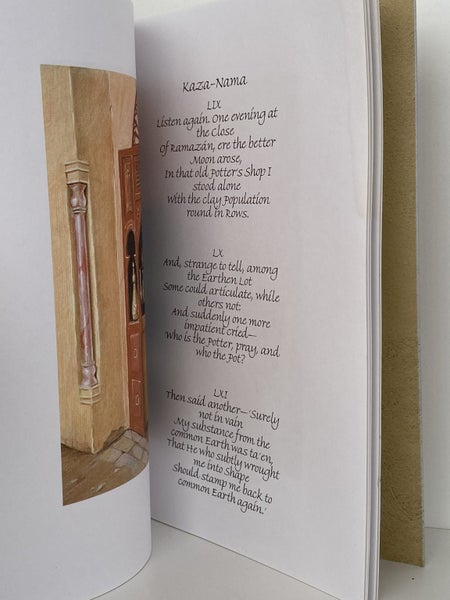 Kaza-Nama
LIX
Listen again. One evening at
the Close
Of Ramazán, ere the better
Moon arose,
In that old Potter's Shop I
stood alone
With the clay Population
round in Rows.
LX
And, strange to tell, among
the Earthen Lot
Some could articulate, while
others not:
And suddenly one more
impatient cried—
Who is the Potter, pray, and
who the Pot?
LXI
Then said another—'Surely
not in vain
My substance from the
common Earth was ta'en,
That He who subtly wrought
me into Shape
Should stamp me back to
common Earth again.'